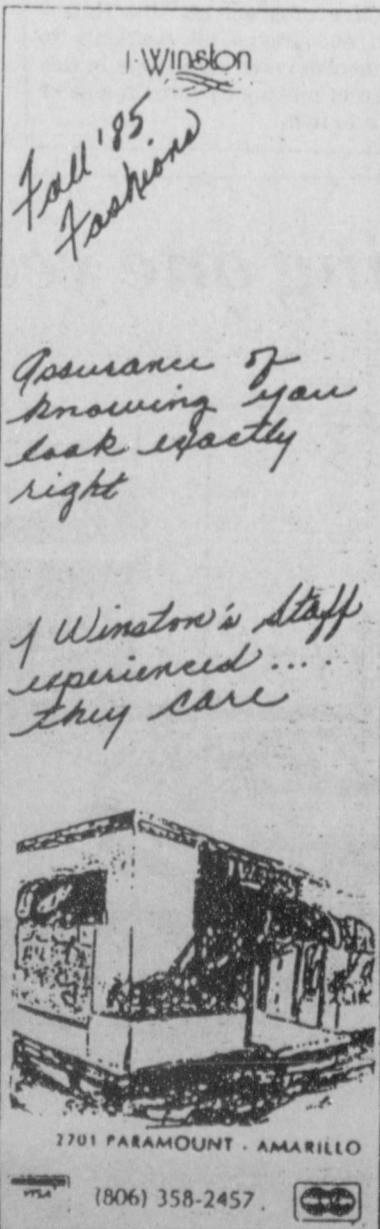 I. Winston
Fall '85
Fashions
Assurance of
knowing you
look exactly
right
I Winston's Staff
experienced....
they care
2701 PARAMOUNT - AMARILLO
VISA
(806) 358-2457